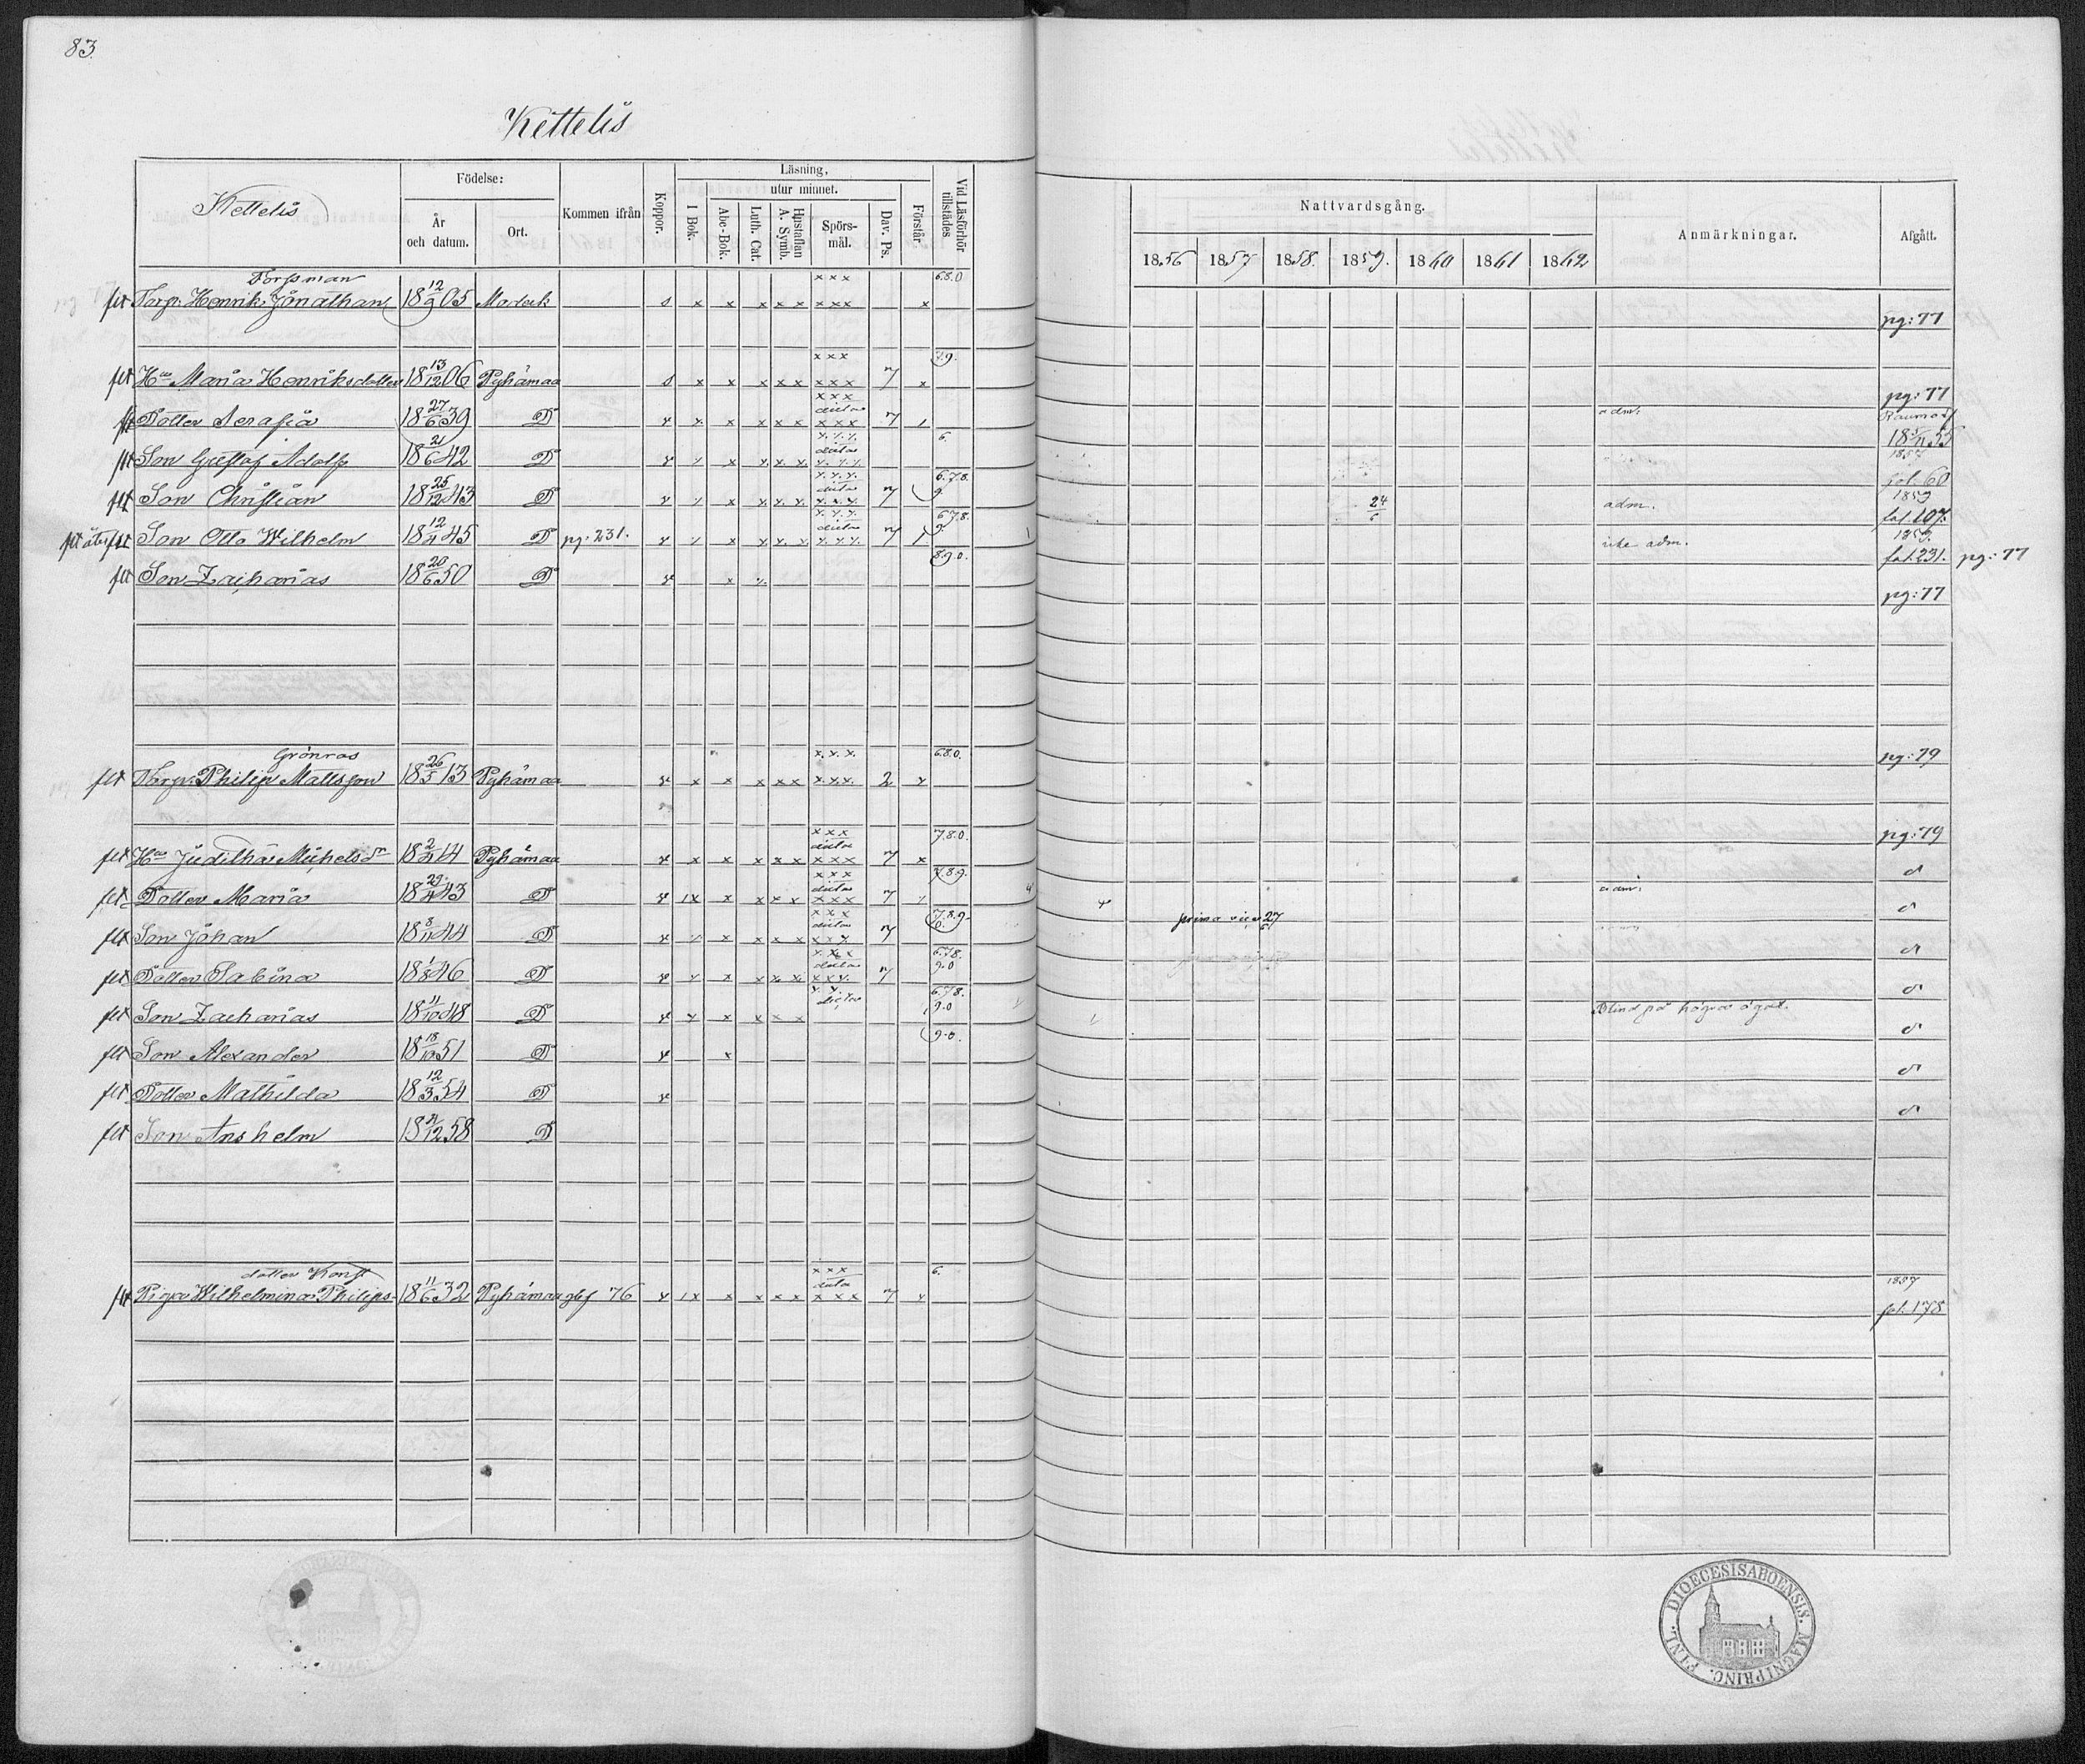 83.
Kettelis
Kettelis
Födelse:
År och datum.
Ort.
Kommen ifrån
Koppor.
Läsning,
utur minnet.
I Bok.
Abc-Bok.
Luth. Cat.
Hustaflan A. Symb.
Spörsmål.
Dav. Ps.
Förstår.
Vid Läsförhör tillstädes
Nattvardsgång.
1856 1857 1858. 1859. 1860 1861 1862
Anmärkningar.
Afgått.
Torpman x x x 6.8.0
flt Torp. Henrik Jonathan 18 12/9 05 s x x x x x x x x x pg: 77
x x x 7.9.
flt Hu Maria Henriksdotter 18 13/12 06 Pyhämaa s x x x x x x x x 7 x pg: 77
Dotter Serafia 18 27/6 39 D adm: Raumo 18 5/11 55
flt Son Gustaf Adolf 18 21/6 42 D 6. 1857 fol. 60
flt Son Christian 18 25/12 43 D 7 6.7.8. 9. 24/6 adm. 1859 fol. 107.
Son Otto Wilhelm 18 12/11 45 D pg: 231. 7 6.7.8. 9. icke adm. 1859. fol. 231. pg: 77
flt Son Zacharias 18 20/6 50 D 8.9.0. pg: 77
Grönroos x. x. x. 6.8.0.
flt Torp. Philip Mattsson 18 26/5 13 Pyhämaa x x x x x x x.x.x. 2 x pg: 79
flt Hu Juditha Michelsdr 18 2/2 14 Pyhämaa 7 x 7.8.0. pg: 79
flt Dotter Maria 18 29/4 43 D 7 7.8.9. adm:
flt Son Johan 18 8/11 44 D 7 7.8.9. prima vice 27/6
flt Dotter Sabina 18 1/8 46 D 7 6.7.8. 9.0
flt Son Zacharias 18 11/10 48 D 6.7.8. 9.0 Blind på högra ögat.
flt Son Alexander 18 18/10 51 D x 9.0.
flt Dotter Mathilda 18 12/3 54 D
flt Son Anshelm 18 21/12 58 D
dotter x x x 6.
flt Piga Wilhelmina Philips- 18 11/6 32 Pyhämaa 76 7 1857 fol. 178
DIOECESIS ABOENSIS. MAGNI PRINC. FINL.